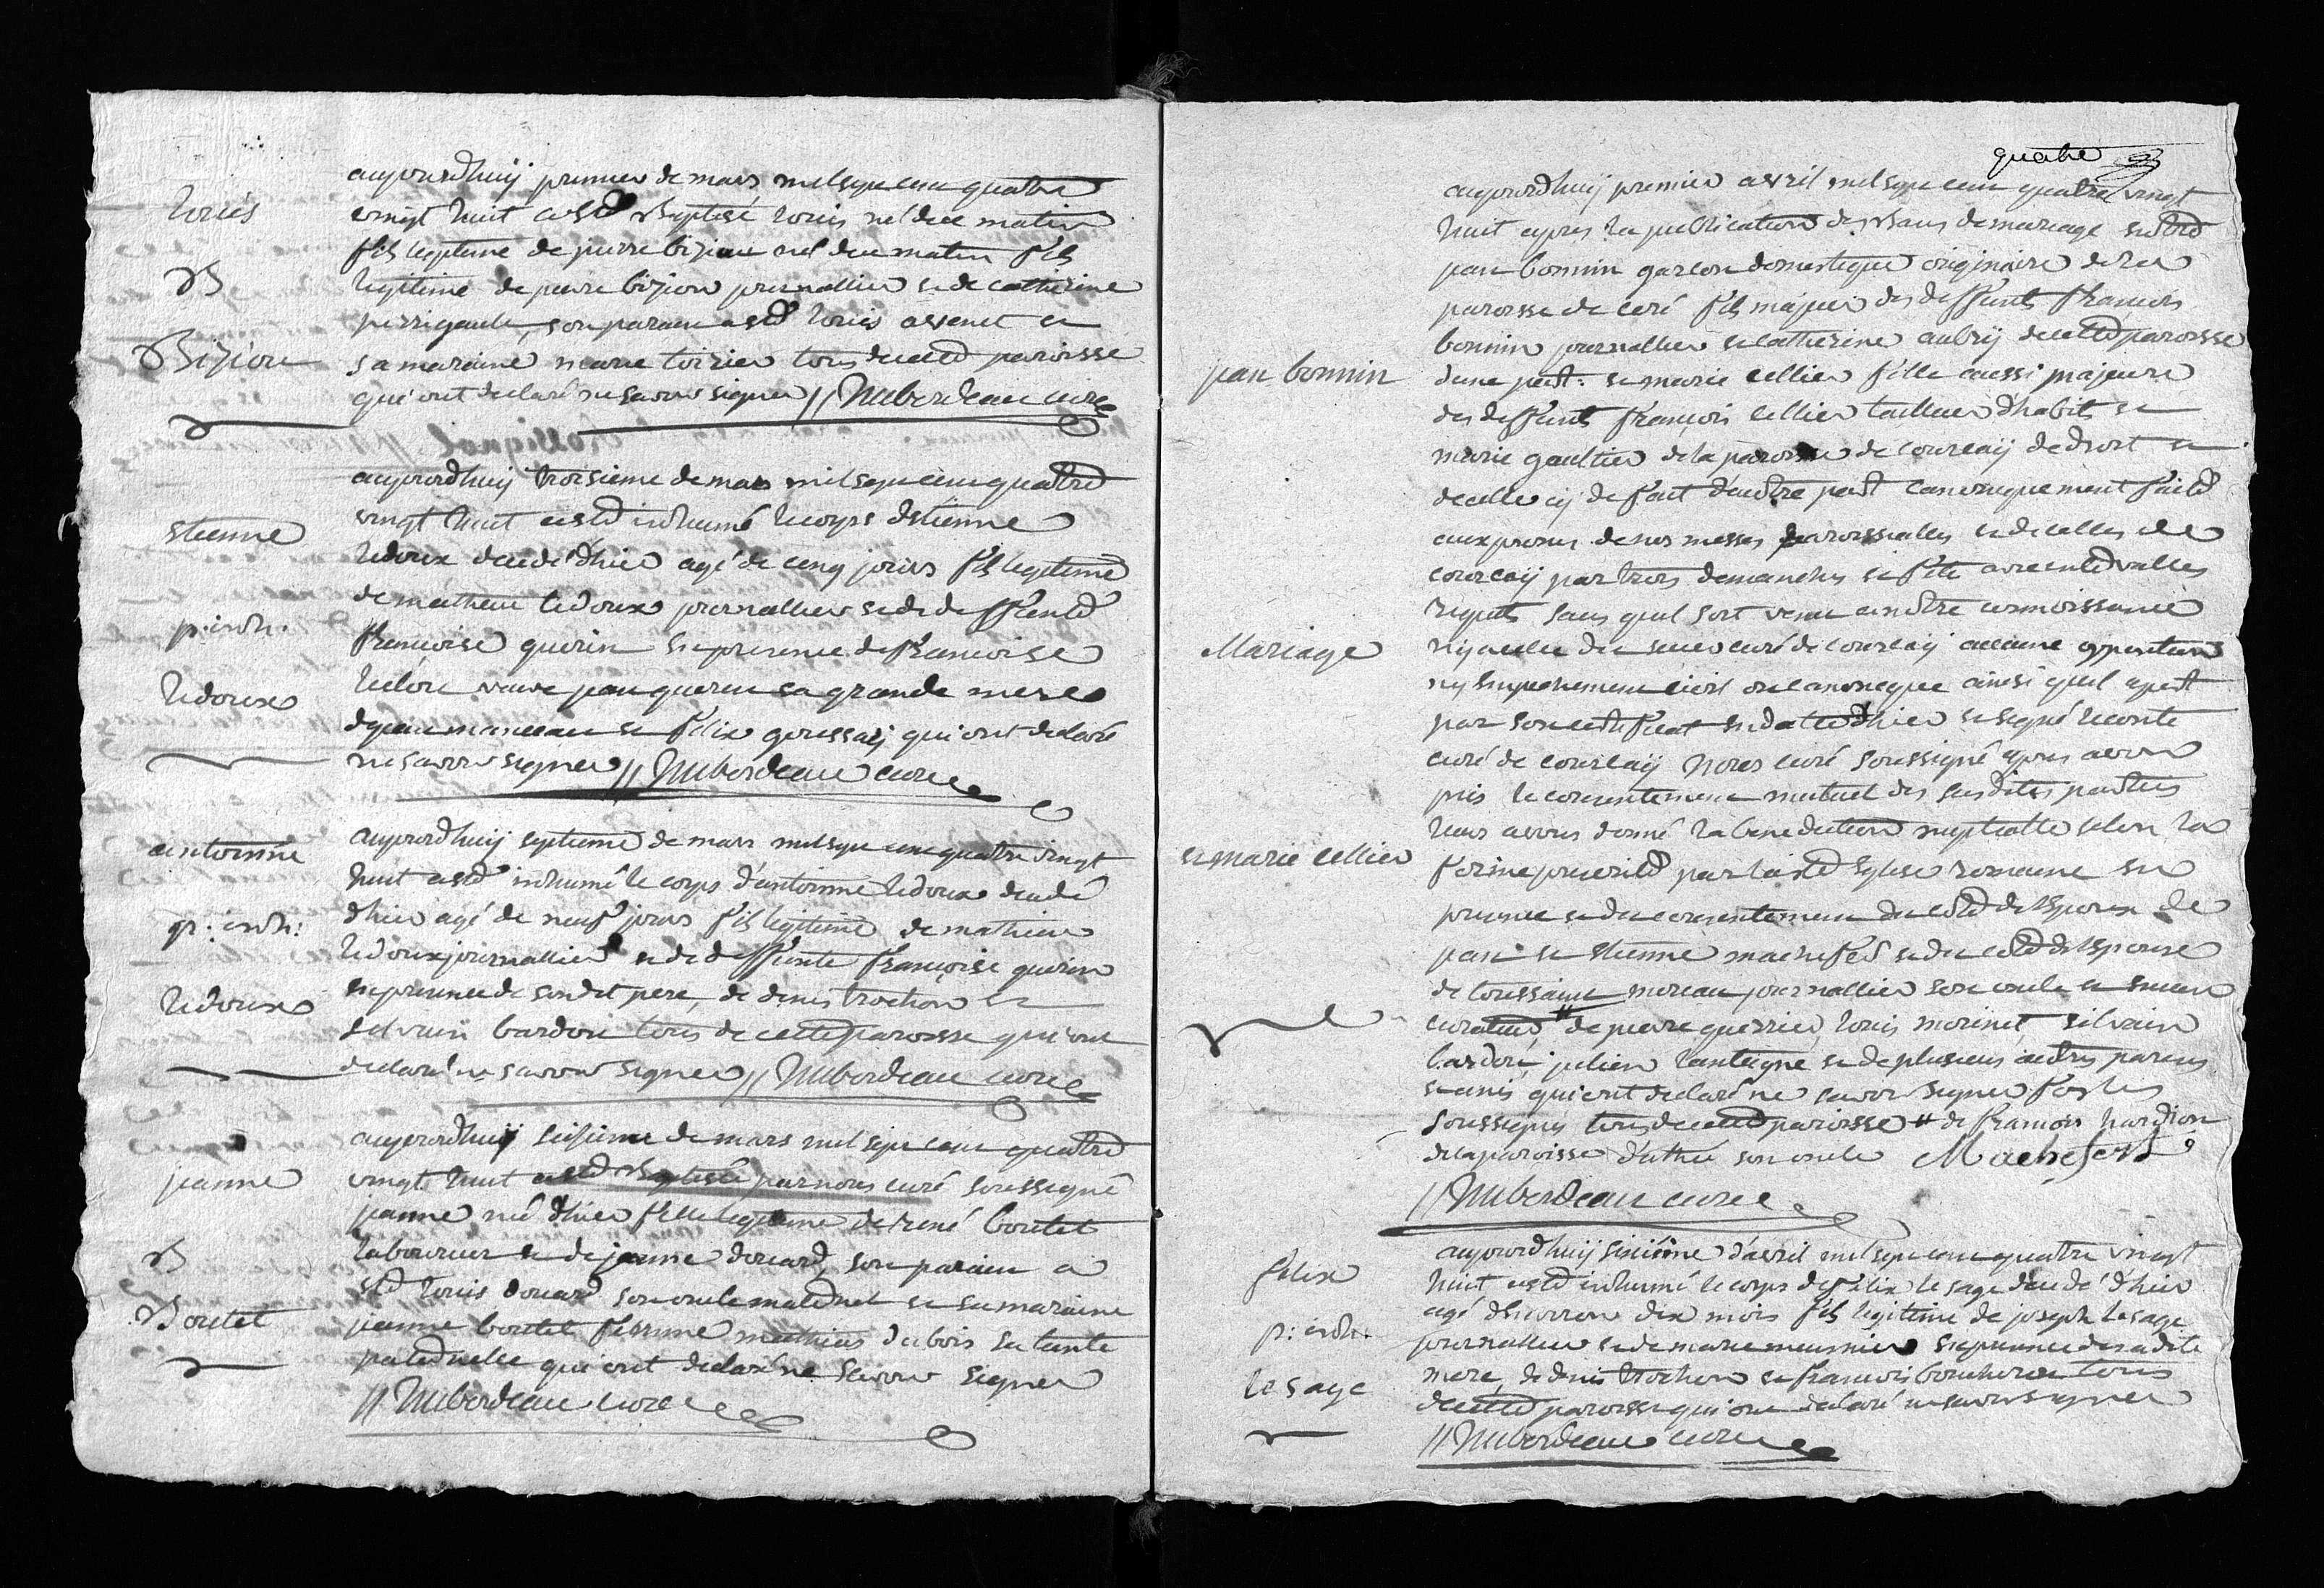 Louis
B
Bizion
aujourdhuij premier de mars mil sept cent quatre
vingt huit a esté Baptisé Louis né de ce matin
fils legitime de pierre bizion né de ce matin fils
legitime de pierre bizion journallier et de catherine
perrigault, son parain a esté Louis avenet et
sa maraine marie loizier tous de cette paroisse
qui ont declaré ne savoir signer // Nubordeau curé
etienne
p: inh.
Ledoux
aujourdhuij troisieme de mars mil sept cent quatre
vingt huit a esté inhumé le corps detienne
Ledoux decedé d'hier agé de cinq jours fils legitime
de mathieu Ledoux journallier et de deffunte
françoise guerin en presence de françoise
veuve jean guerin sa grande mere
manceau et felix goussaij qui ont declaré
ne savoir signer // Nubordeau curé
antoinne
p: inh:
Ledoux
aujourdhuij septieme de mars mil sept cent quatre vingt
huit a esté inhumé le corps d'antoinne Ledoux decedé
d'hier agé de neuf jours fils legitime de mathieu
Ledoux journallier et de deffunte françoise guerin
en presence de son dit pere, de denis trochon et
silvain bardou tous de cette paroisse qui ont
declaré ne savoir signer // Nubordeau curé
jeanne
B
Boutet
aujourdhuij seizieme de mars mil sept cent quatre
vingt huit a esté Baptisée par nous curé soussigné
jeanne née d'hier fille legitime de rené boutet
laboureur et de jeanne douard, son parain a
esté Louis douard son oncle maternel et sa maraine
jeanne boutet femme mathieu dubois sa tante
paternelle qui ont declaré ne savoir signer
// Nubordeau curé
quatre
jean bonnin
Mariage
et marie cellier
aujourdhuij premier avril mil sept cent quatre vingt
huit apres la publication des bans de mariage entre
jean bonnin garçon domestique originaire de la
paroisse de ceré fils majeur des deffunts francois
bonnin journallier et catherine aubrij de cette paroisse
d'une part: et marie cellier fille aussi majeure
des deffunts françois cellier tailleur d'habits et
marie gaultier de la paroisse de courcaij de droit et
de celle cij de fait d'autre part canoniquement faite
aux prones de nos messes paroissialles et de celles de
courcaij par trois dimanches et fete avec intervalles
requis sans quil soit venu a notre connoissance
nij a celle du sieur curé de courcaij aucune opposition
nij empechement civil ou canonique ainsi quil apert
par son certificat en datte d'hier et signé Leconte
curé de courcaij Nous curé soussigné apres avoir
pris le consentement mutuel des susdites parties
leur avons donné la benediction nuptialle selon la
forme prescrite par la ste Eglise romaine en
presence et du consentement du coté de l'epoux de
jean et etienne machefert et du coté de l'epouse
de toussaint moreau journallier son oncle et
curateur # de pierre guerrier, Louis morinet, silvain
bardou, julien lanteigne et de plusieurs autres parens
et amis qui ont declaré ne savoir signer fors les
soussignés tous de cette paroisse # de francois hardion
de la paroisse d'athée son oncle Machefert
// Nubordeau curé
felix
p: inh.
le sage
aujourdhuij sixiême d'avril mil sept cent quatre vingt
huit a esté inhumé le corps de felix le sage decedé d'hier
agé d'environ dix mois fils legitime de joseph lesage
journallier et de marie meusnier en presence de sa dite
mere, de denis trochon et francois boucheron tous
de cette paroisse qui ont declaré ne savoir signer
// Nubordeau curé